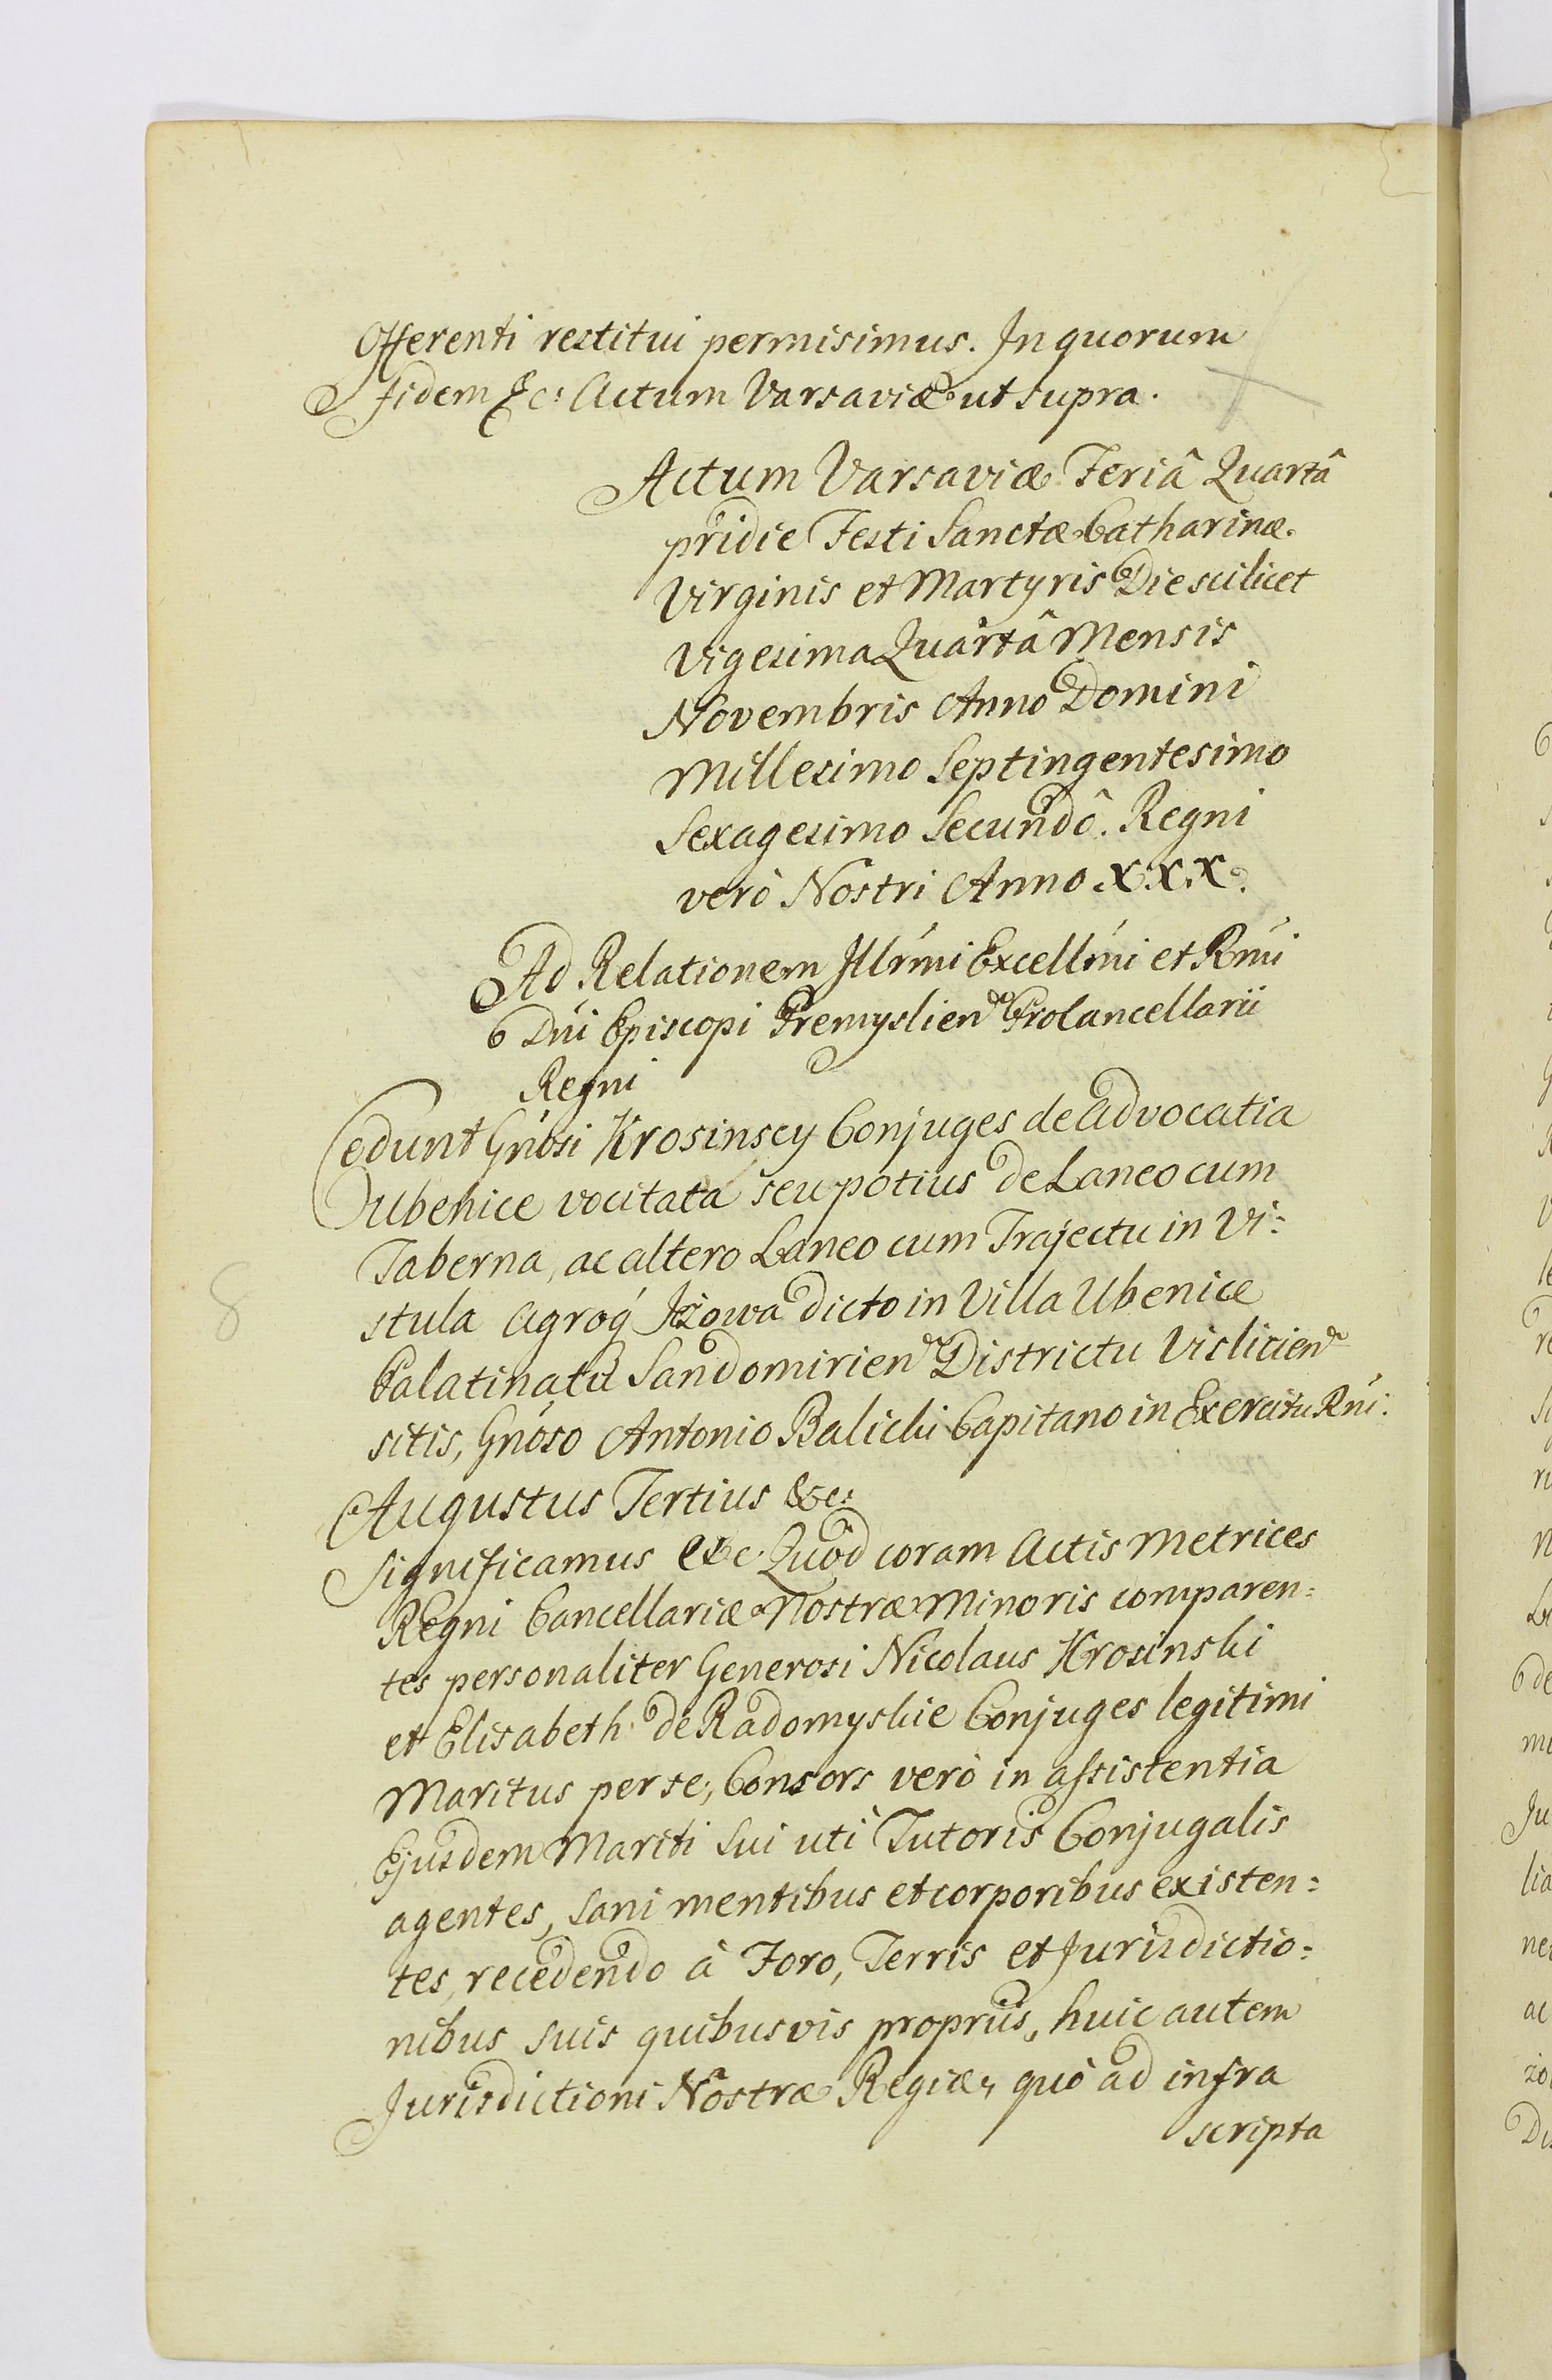 Offerenti restitui permisimus. In quorum
fidem &c: Actum Varsaviæ ut supra.
Actum Varsaviæ Feriâ Quartâ
pridie Festi Sanctæ Catharinæ
Virginis et Martyris Die scilicet
Vigesima Quartâ Mensis
Novembris Anno Domini
Millesimo Septingentesimo
Sexagesimo Secundô. Regni
verò Nostri Anno XXX.
Ad Relationem Illrmi Excellmi et Rmi
Dni Episcopi Premyslien Procancellarii
Regni
Cedunt Gnosi Krosinscy Conjuges de Advocatia
Ubenice vocitata seu potius de Laneo cum
Taberna, ac altero Laneo cum Trajectu in Vi:
stula Agroq́ Jżowa dicto in Villa Ubenice
Palatinatu Sandomirien Districtu Vislicien
sitis, Gnoso Antonio Balicki Capitano in Exercitu Rni:
Augustus Tertius &c:
Significamus &c. Quod coram Actis Metrices
Regni Cancellariæ Nostræ Minoris comparen:
tes personaliter Generosi Nicolaus Krosinski
et Elisabeth de Radomyskie Conjuges legitimi
Maritus per se, Consors verò in assistentia
Ejusdem Mariti sui uti Tutoris Conjugalis
agentes, sani mentibus et corporibus existen:
tes, recedendo à Foro, Terris et Jurisdictio:
nibus suis quibusvis propriis, huic autem
Jurisdictioni Nostræ Regiæ, quò ad infra
scripta
8